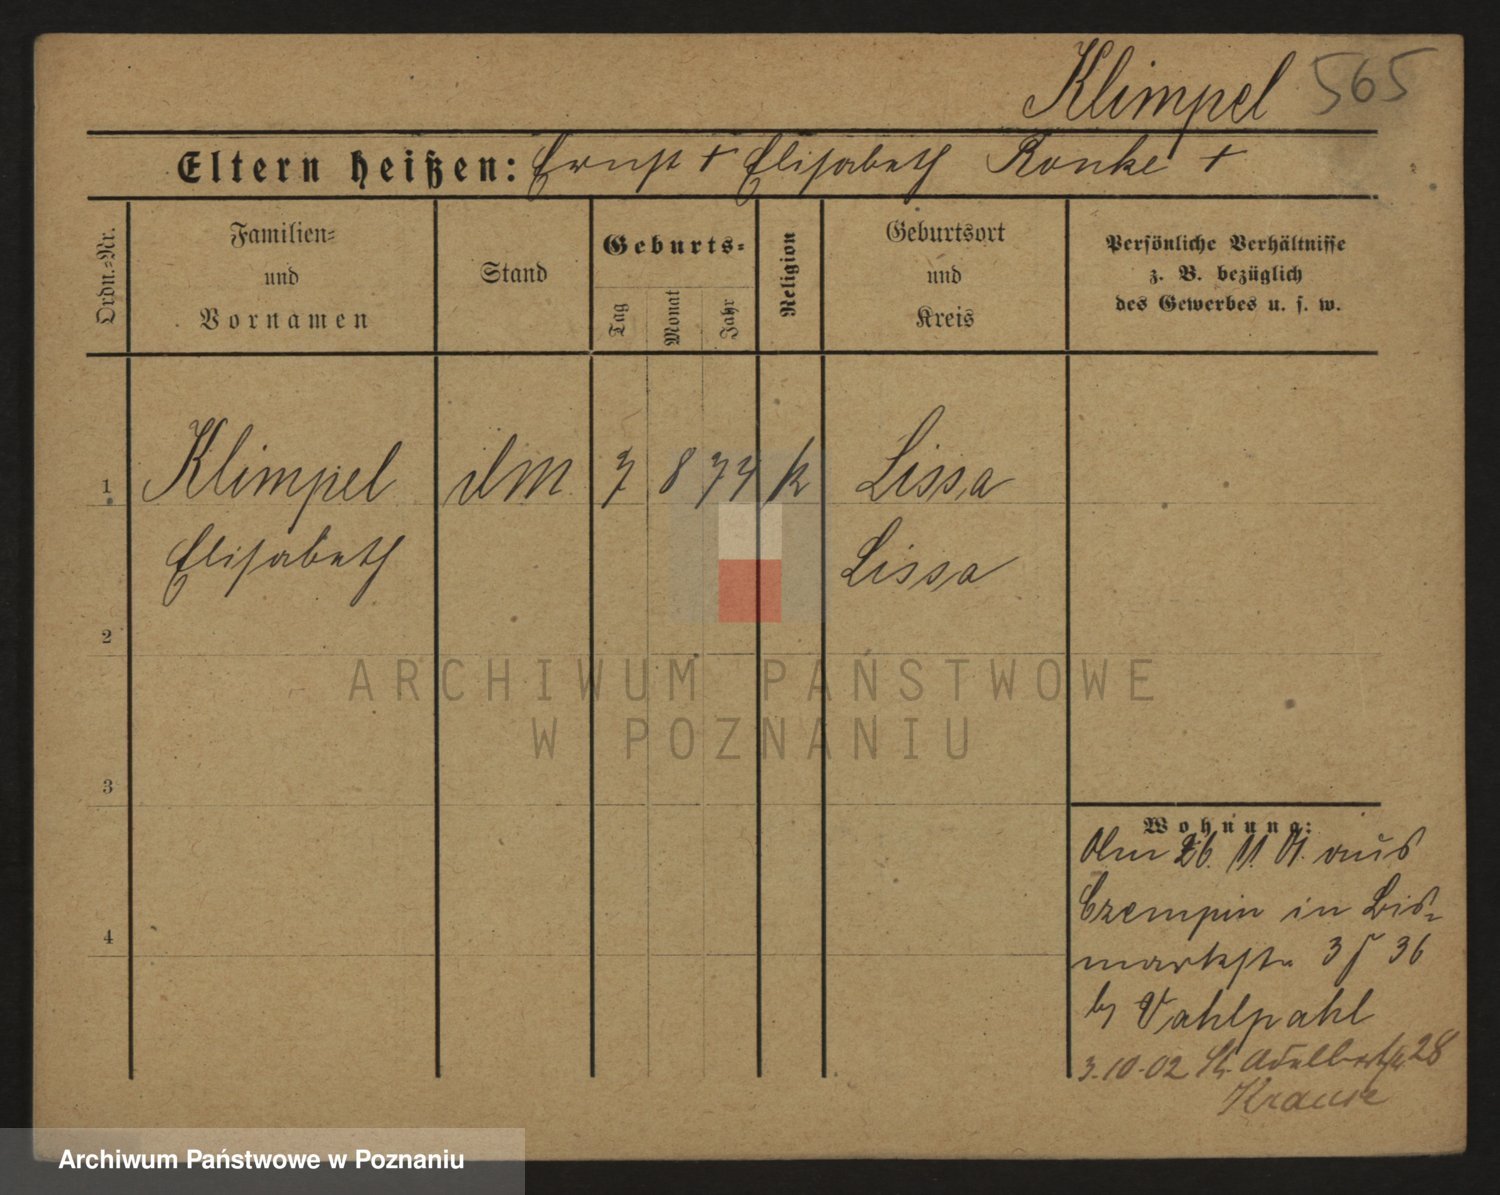 Klimpel 565
Eltern heißen: Ernst + Elisabeth Ronke +
Ordn.=Nr.
Familien=
und
Vornamen
Stand
Geburts=
Tag
Monat
Jahr
Religion
Geburtsort
und
Kreis
Persönliche Verhältnisse
z. B. bezüglich
des Gewerbes u. s. w.
1 Klimpel 7 8 74 k Lissa
Elisabeth Lissa
2
3
4
ARCHIWUM PAŃSTWOWE
W POZNANIU
Wohnung:
26. 11. 01. aus
Czempin in Bis=
markstr 36
b/ Vahlpahl
3.10.02 St. Adelbertstr 28
Krause
Archiwum Państwowe w Poznaniu